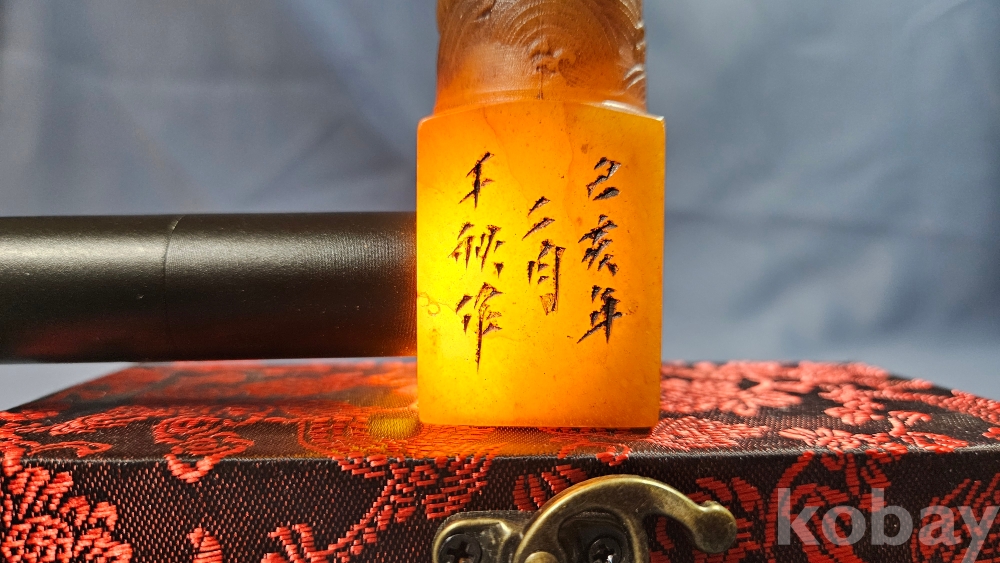 己亥年
二月
千秋作
kobay